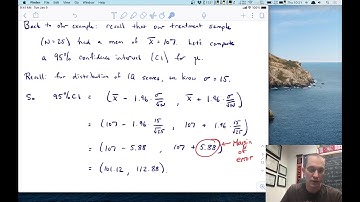 Back to our example: recall that our treatment sample
(N=25) had a mean of X̄ = 107. Let's compute
a 95% confidence interval (CI) for μ.
Recall: for distribution of IQ scores, we know σ = 15.
So 95% CI = (X̄ - 1.96·σ/√N , X̄ + 1.96·σ/√N)
= (107 - 1.96·15/√25 , 107 + 1.96·15/√25)
= (107 - 5.88 , 107 + 5.88) ← Margin of error
= (101.12, 112.88)